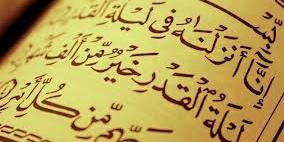 إِنَّا أَنزَلْنَٰهُ فِى لَيْلَةِ ٱلْقَدْرِ
لَيْلَةُ ٱلْقَدْرِ خَيْرٌ مِّنْ أَلْفِ شَهْرٍ
مِّن كُلِّ أَمْرٍ